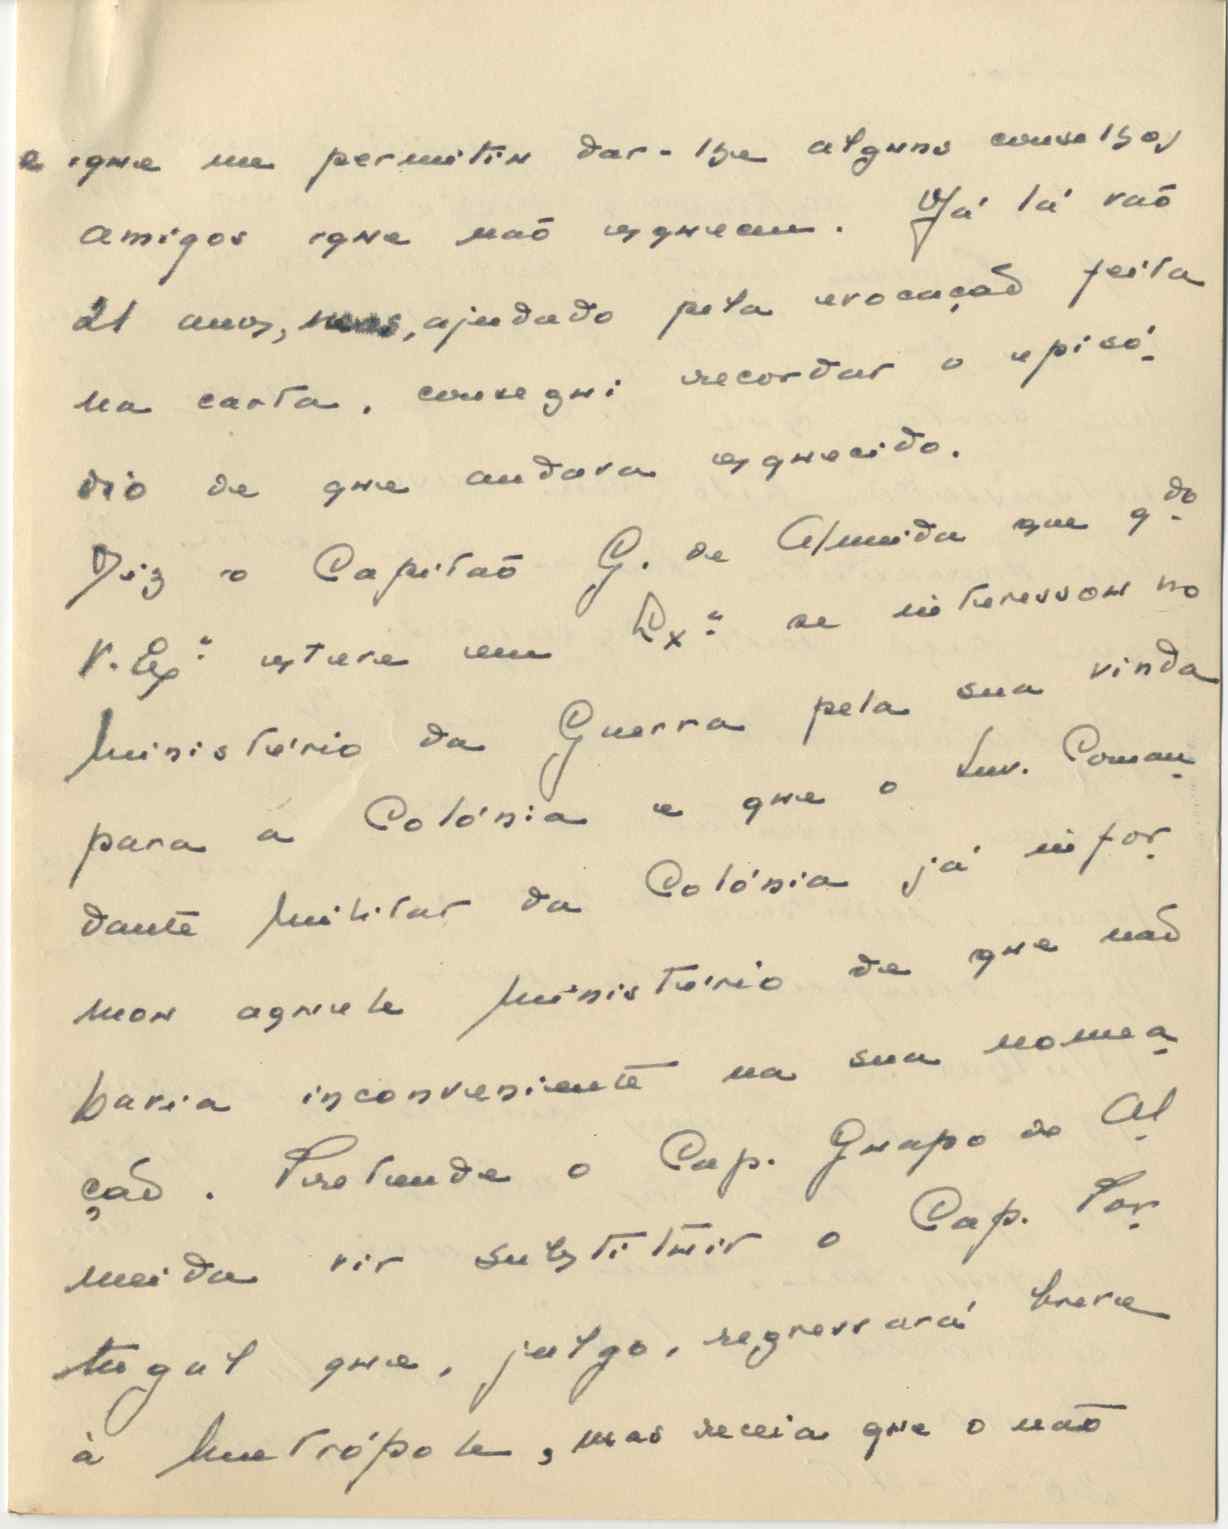 e que me permitiu dar-lhe alguns conselhos
amigos que não esqueceu. Já lá vão
21 anos, mas, ajudado pela evocação feita
na carta, consegui recordar o episó-
dio de que andava esquecido.
Diz o Capitão G. de Almeida que qdo
V. Exª esteve em Lxª se interessou no
Ministério da Guerra pela sua vinda
para a Colónia e que o Snr. Coman-
dante Militar da Colónia já infor-
mou aquele Ministério de que não
havia inconveniente na sua nomea-
ção. Pretende o Cap. Guapo de Al-
meida vir substituir o Cap. Por-
tugal que, julgo, regressará breve
à Metrópole, mas receia que o não